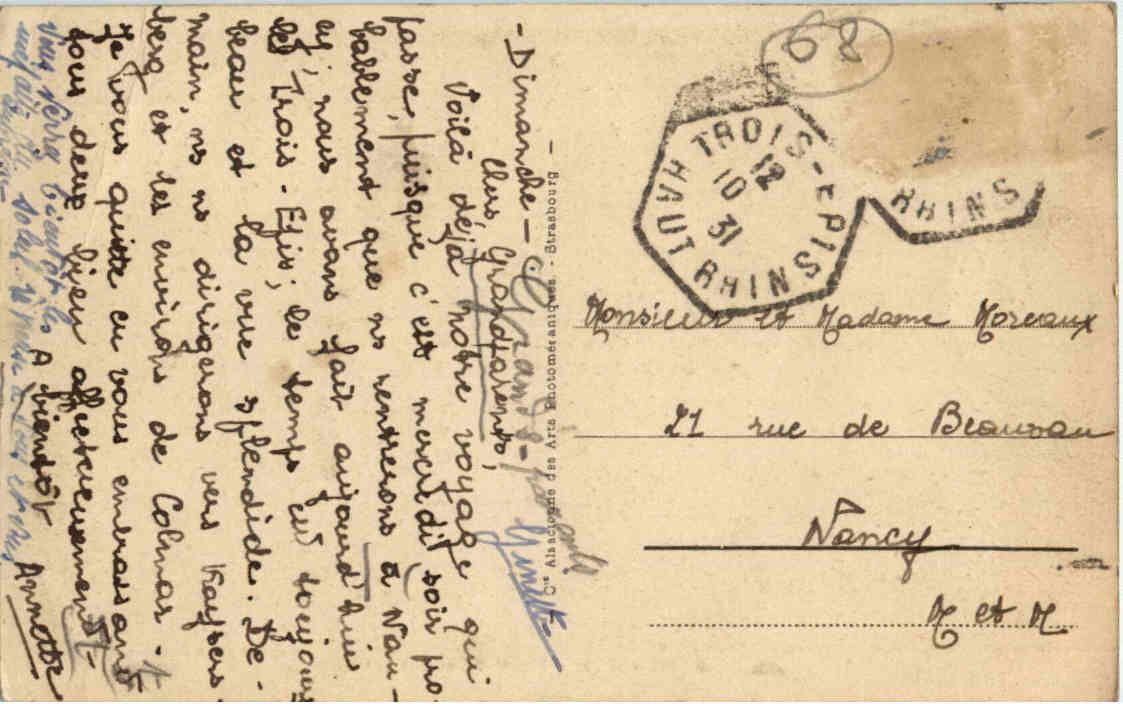 - Dimanche -
Chers Grandparents,
Voilà déjà notre voyage qui
passe, puisque c'est mercredi soir pro-
bablement que ns rentrerons à Nan-
cy; nous avons fait aujourd'hui
les Trois-Epis; le temps est toujours
beau et la vue splendide. De-
main, ns ns dirigerons vers Kaysers-
berg et les environs de Colmar.
Je vous quitte en vous embrassant
tous deux bien affectueusement
A bientôt Annette
Vous verrez bientôt les
soleil
Grands-parents
Ginette
Cie Alsacienne des Arts Photomécaniques - Strasbourg -
68
TROIS-EPIS
HAUT RHINS
12
10
31
RHINS
Monsieur et Madame Moreaux
21 rue de Beauvau
Nancy
M et M